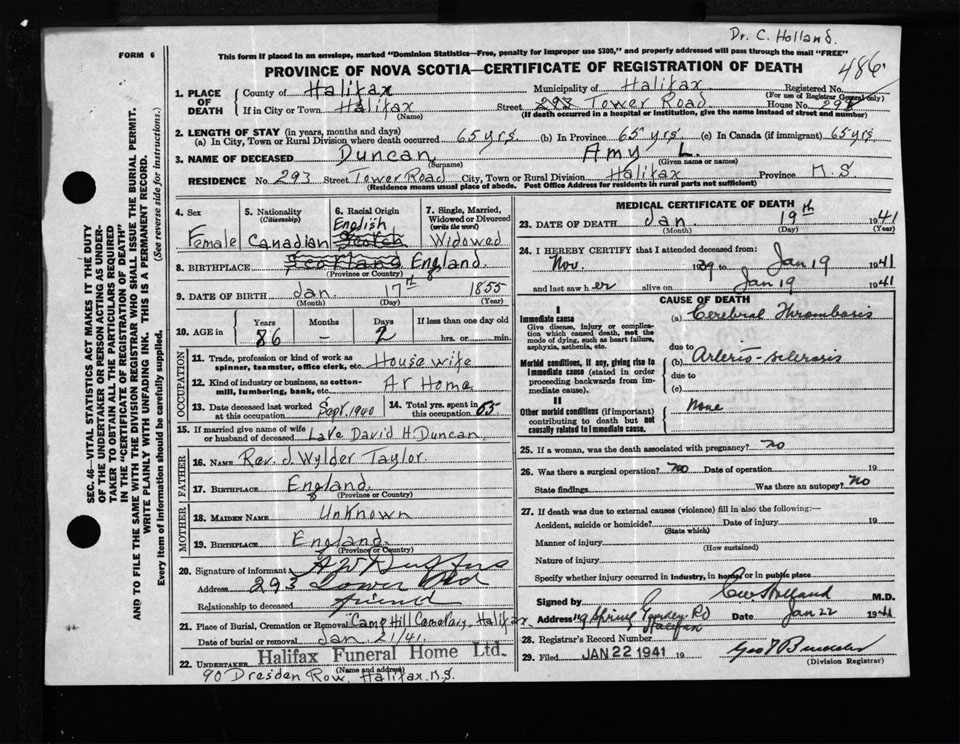 Dr. C. Holland.
FORM 6
This form if placed in an envelope, marked "Dominion Statistics—Free, penalty for improper use $300," and properly addressed will pass through the mail "FREE"
486
PROVINCE OF NOVA SCOTIA—CERTIFICATE OF REGISTRATION OF DEATH
1. PLACE OF DEATH
County of Halifax Municipality of Halifax Registered No.
(For use of Registrar General only)
If in City or Town Halifax Street 293 Tower Road House No. 293
(Name) (If death occurred in a hospital or institution, give the name instead of street and number)
2. LENGTH OF STAY (in years, months and days)
(a) In City, Town or Rural Division where death occurred 65 yrs (b) In Province 65 yrs. (c) In Canada (if immigrant) 65 yrs
3. NAME OF DECEASED Duncan Amy L.
(Surname) (Given name or names)
RESIDENCE No. 293 Street Tower Road City, Town or Rural Division Halifax Province N.S
(Residence means usual place of abode. Post Office Address for residents in rural parts not sufficient)
4. Sex Female
5. Nationality (Citizenship) Canadian
6. Racial Origin English Scotch
7. Single, Married, Widowed or Divorced (write the word) Widowed
8. BIRTHPLACE Scotland England.
(Province or Country)
9. DATE OF BIRTH Jan. 17th 1855
(Month) (Day) (Year)
10. AGE in Years Months Days If less than one day old
86 — 2 hrs. or min.
OCCUPATION
11. Trade, profession or kind of work as spinner, teamster, office clerk, etc. House wife
12. Kind of industry or business, as cotton-mill, lumbering, bank, etc. At Home
13. Date deceased last worked at this occupation Sept. 1940
14. Total yrs. spent in this occupation 65
15. If married give name of wife or husband of deceased Late David H. Duncan
FATHER
16. NAME Rev. J. Wylder Taylor.
17. BIRTHPLACE England
(Province or Country)
MOTHER
18. MAIDEN NAME Unknown
19. BIRTHPLACE England.
(Province or Country)
20. Signature of informant
Address 293 Tower Rd
Relationship to deceased friend
21. Place of Burial, Cremation or Removal Camp Hill Cemetery, Halifax
Date of burial or removal Jan. 21/41.
22. UNDERTAKER Halifax Funeral Home Ltd.
(Name and address)
90 Dresden Row, Halifax. N.S.
MEDICAL CERTIFICATE OF DEATH
23. DATE OF DEATH Jan 19th 1941
(Month) (Day) (Year)
24. I HEREBY CERTIFY that I attended deceased from:
Nov. 1939 to Jan 19 1941
and last saw her alive on Jan 19 1941
CAUSE OF DEATH
I
Immediate cause
Give disease, injury or complication which caused death, not the mode of dying, such as heart failure, asphyxia, asthenia, etc.
(a) Cerebral Thrombosis
due to
Morbid conditions, if any, giving rise to immediate cause (stated in order proceeding backwards from immediate cause).
(b) Arterio-sclerosis
due to
(c)
II
Other morbid conditions (if important) contributing to death but not causally related to immediate cause.
None
25. If a woman, was the death associated with pregnancy? no
26. Was there a surgical operation? no Date of operation 19
State findings Was there an autopsy? no
27. If death was due to external causes (violence) fill in also the following:—
Accident, suicide or homicide? Date of injury 19
(State which)
Manner of injury
(How sustained)
Nature of injury
Specify whether injury occurred in industry, in home, or in public place
Signed by C W Holland M.D.
Address 119 Spring Garden Rd Halifax Date Jan 22 1941
28. Registrar's Record Number
29. Filed JAN 22 1941 19
(Division Registrar)
SEC. 46—VITAL STATISTICS ACT MAKES IT THE DUTY
OF THE UNDERTAKER OR PERSON ACTING AS UNDER-
TAKER TO OBTAIN ALL THE PARTICULARS REQUIRED
IN THE "CERTIFICATE OF REGISTRATION OF DEATH"
AND TO FILE THE SAME WITH THE DIVISION REGISTRAR WHO SHALL ISSUE THE BURIAL PERMIT.
WRITE PLAINLY WITH UNFADING INK. THIS IS A PERMANENT RECORD.
Every item of information should be carefully supplied. (See reverse side for instructions.)